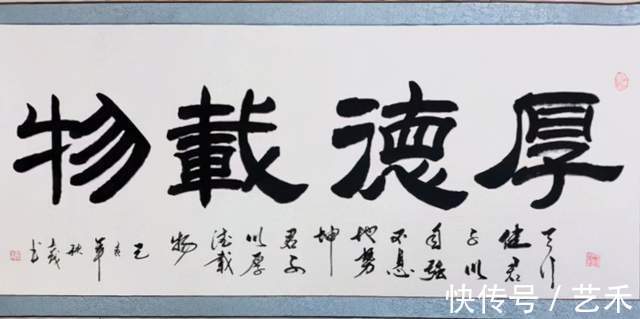 厚德載物
天行
健君
子以
自强
不息
地势
坤
君子
以厚
德载
物
年
秋
书
快传号 / 艺禾